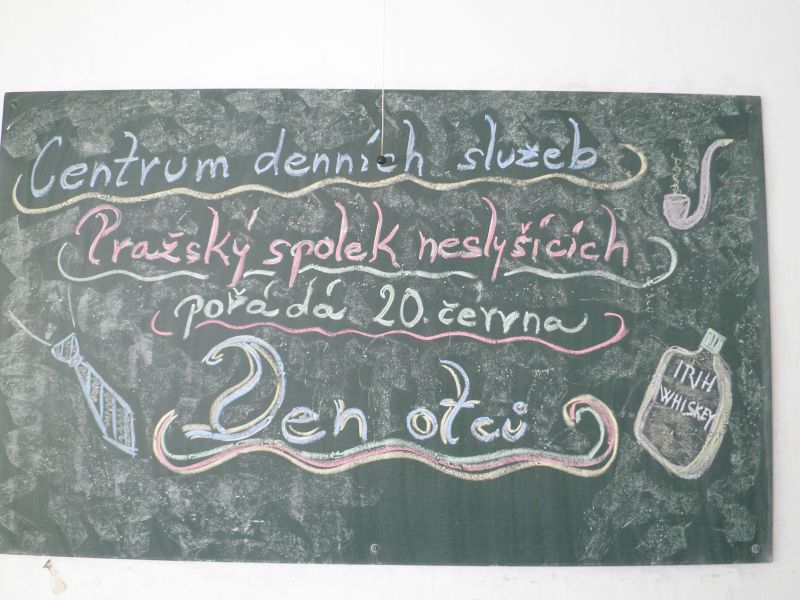 Centrum denních služeb
Pražský spolek neslyšících
pořádá 20. června
Den otců
IRIH
WHISKEY